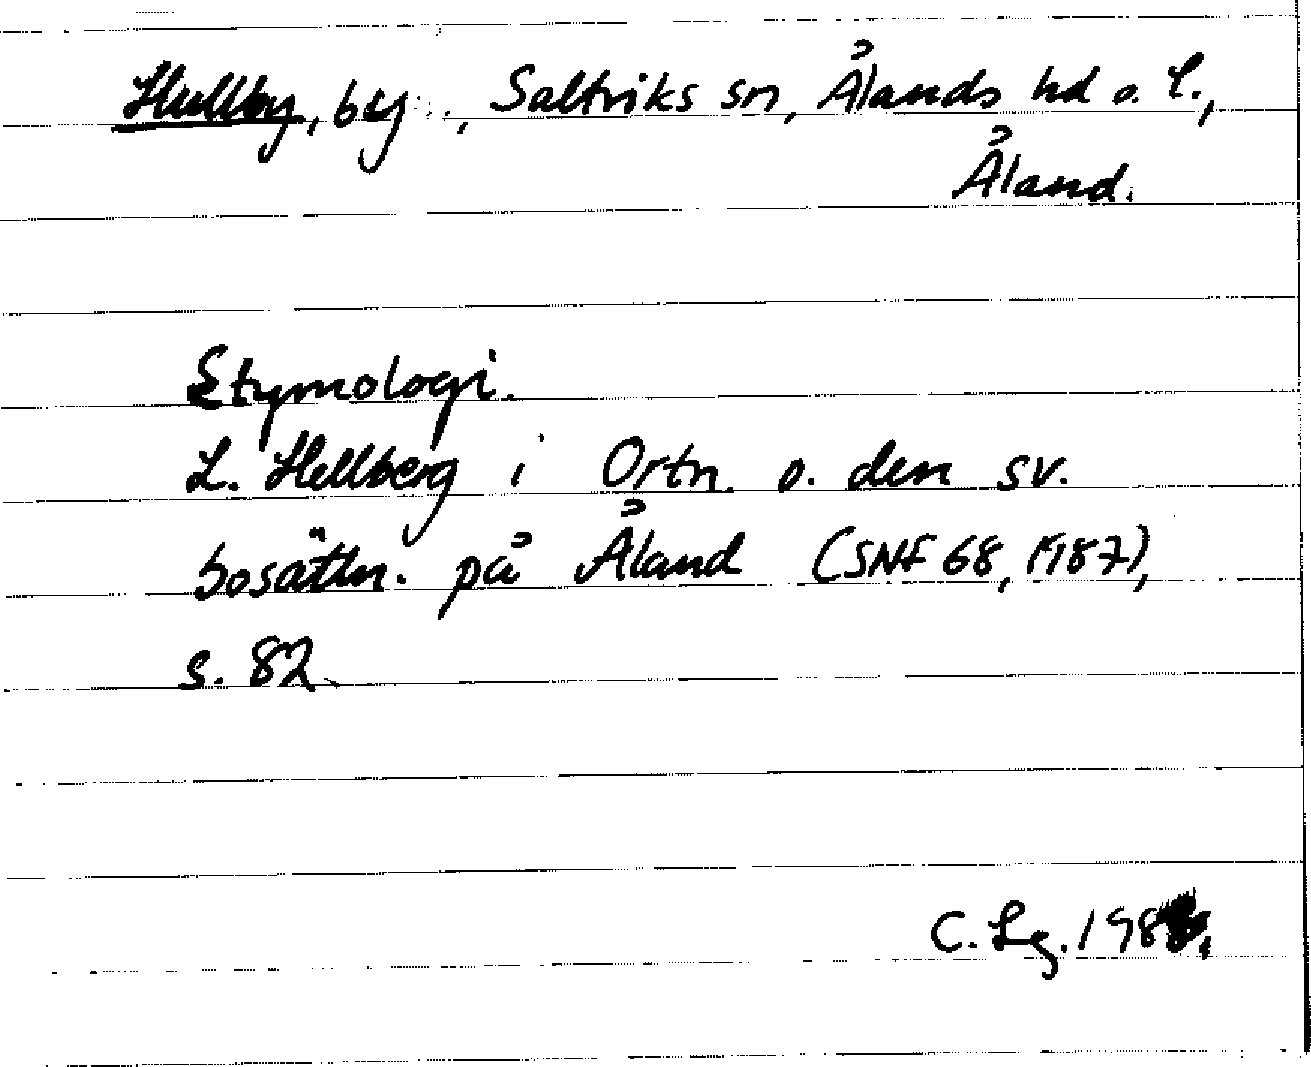 Hullby, by, Saltviks sn, Ålands hd o. l.,
Åland.
Etymologi.
L. Hellberg i Ortn. o. den sv.
bosättn. på Åland (SNF 68, 1987),
s. 82.
C. Lg.